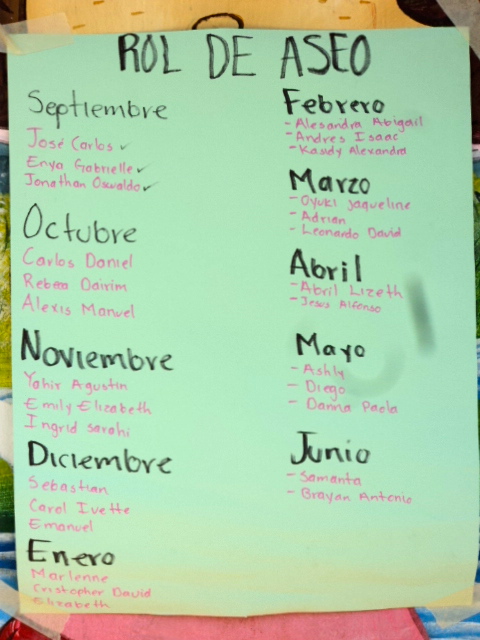 ROL DE ASEO
Septiembre
José Carlos ✓
Enya Gabrielle ✓
Jonathan Oswaldo ✓
Octubre
Carlos Daniel
Rebeca Dairim
Alexis Manuel
Noviembre
Yahir Agustin
Emily Elizabeth
Ingrid Sarahi
Diciembre
Sebastian
Carol Ivette
Emanuel
Enero
Marlenne
Cristopher David
Elizabeth
Febrero
- Alesandra Abigail
- Andres Isaac
- Kassdy Alexandra
Marzo
- Oyuki Jaqueline
- Adrian
- Leonardo David
Abril
- Abril Lizeth
- Jesus Alfonso
Mayo
- Ashly
- Diego
- Danna Paola
Junio
- Samanta
- Brayan Antonio